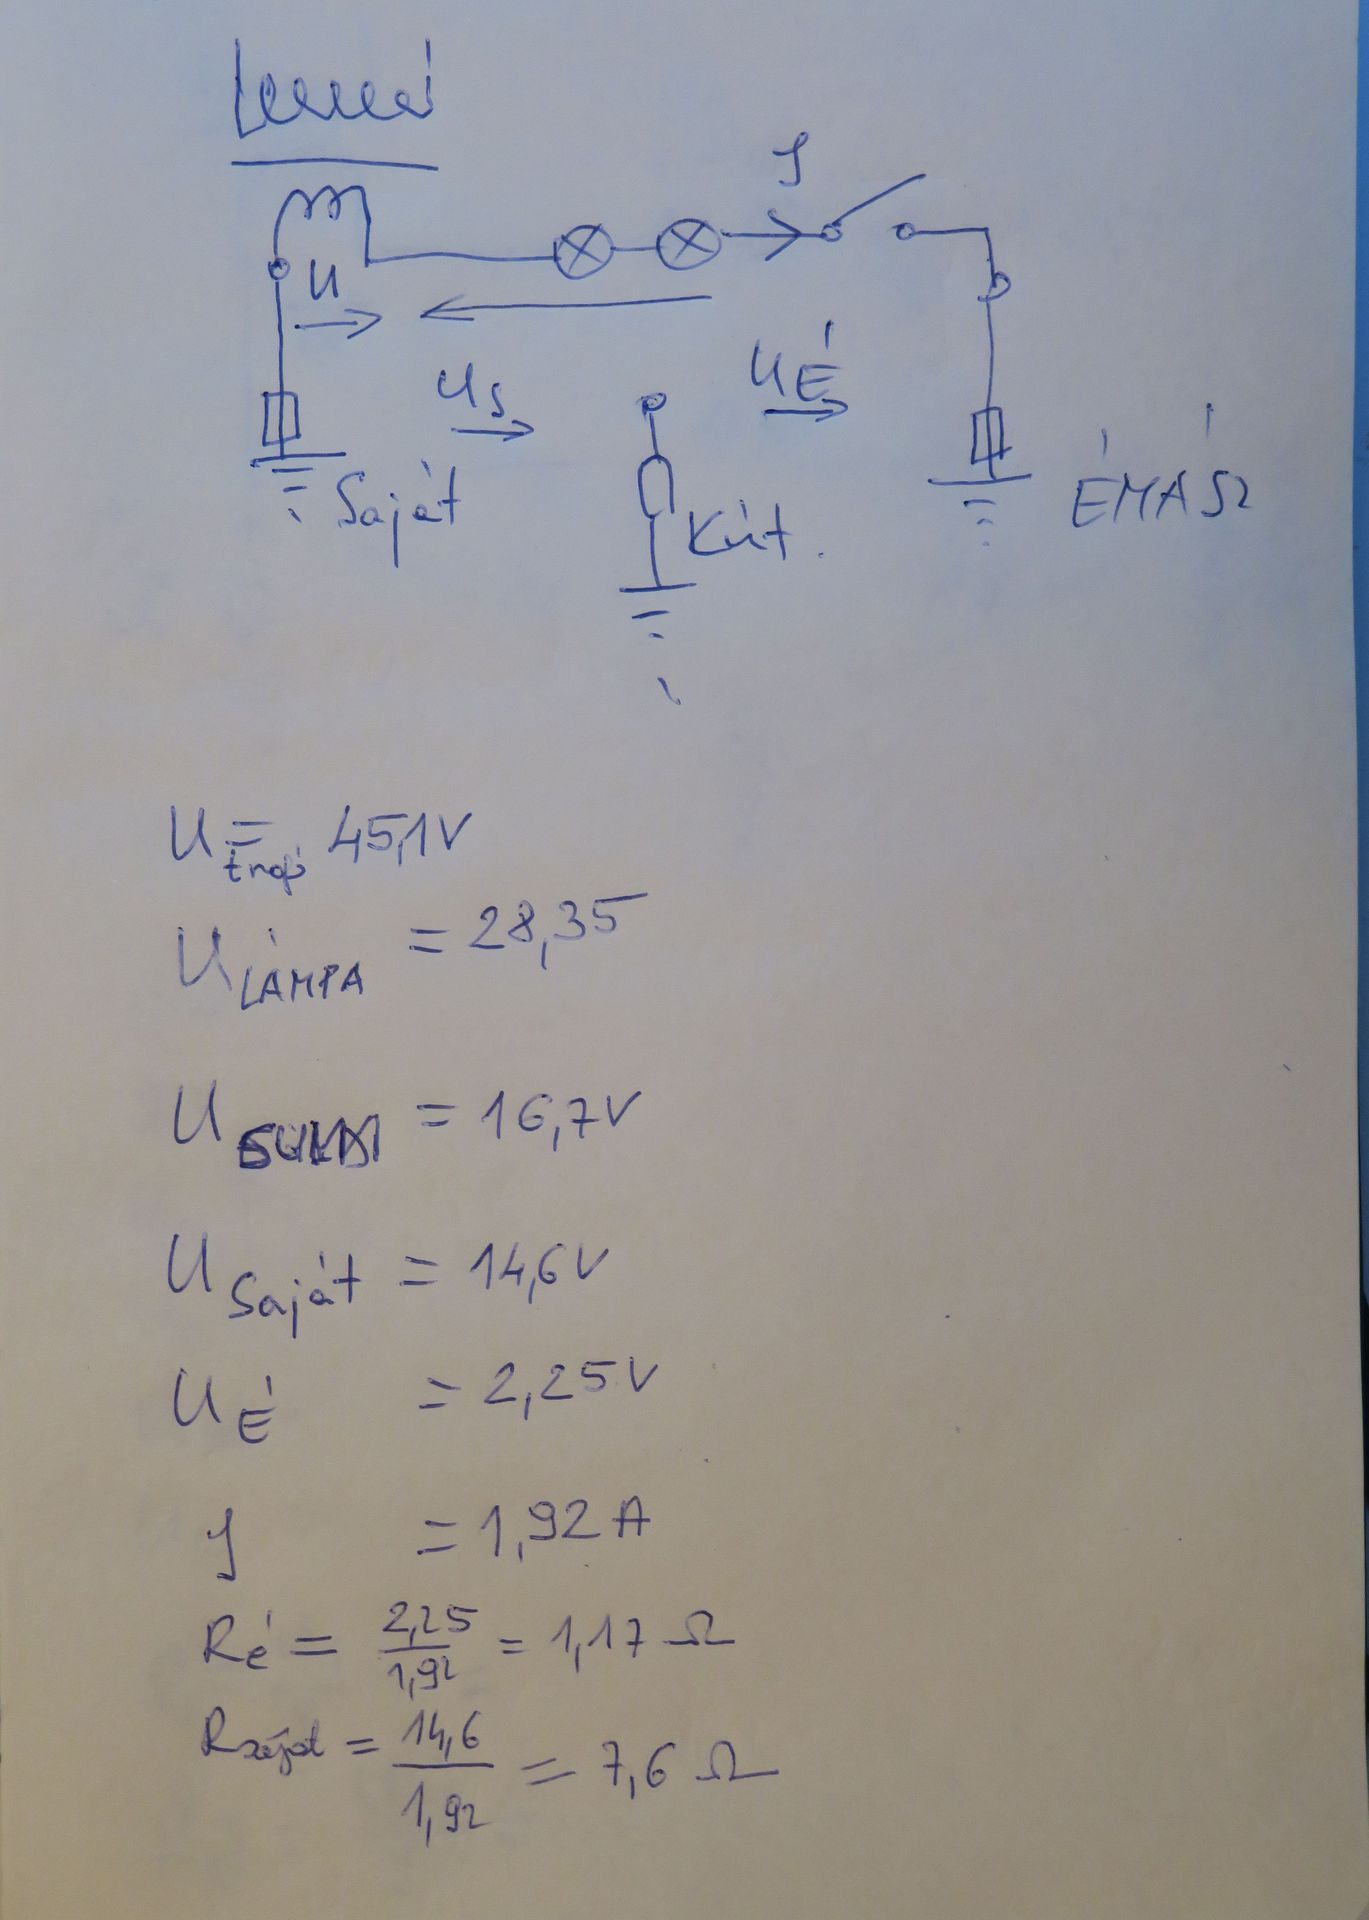 I
U
U É
US
Saját
Kút.
ÉMÁSZ
U trafó = 45,1V
U LÁMPA = 28,35
U = 16,7V
U Saját = 14,6V
U É = 2,25V
I = 1,92 A
Ré = 2,25 / 1,92 = 1,17 Ω
R saját = 14,6 / 1,92 = 7,6 Ω